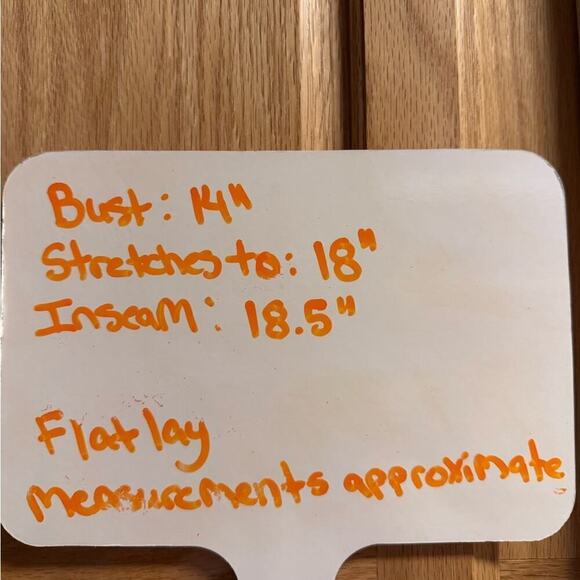 Bust: 14"
Stretches to: 18"
Inseam: 18.5"
Flat lay
measurements approximate